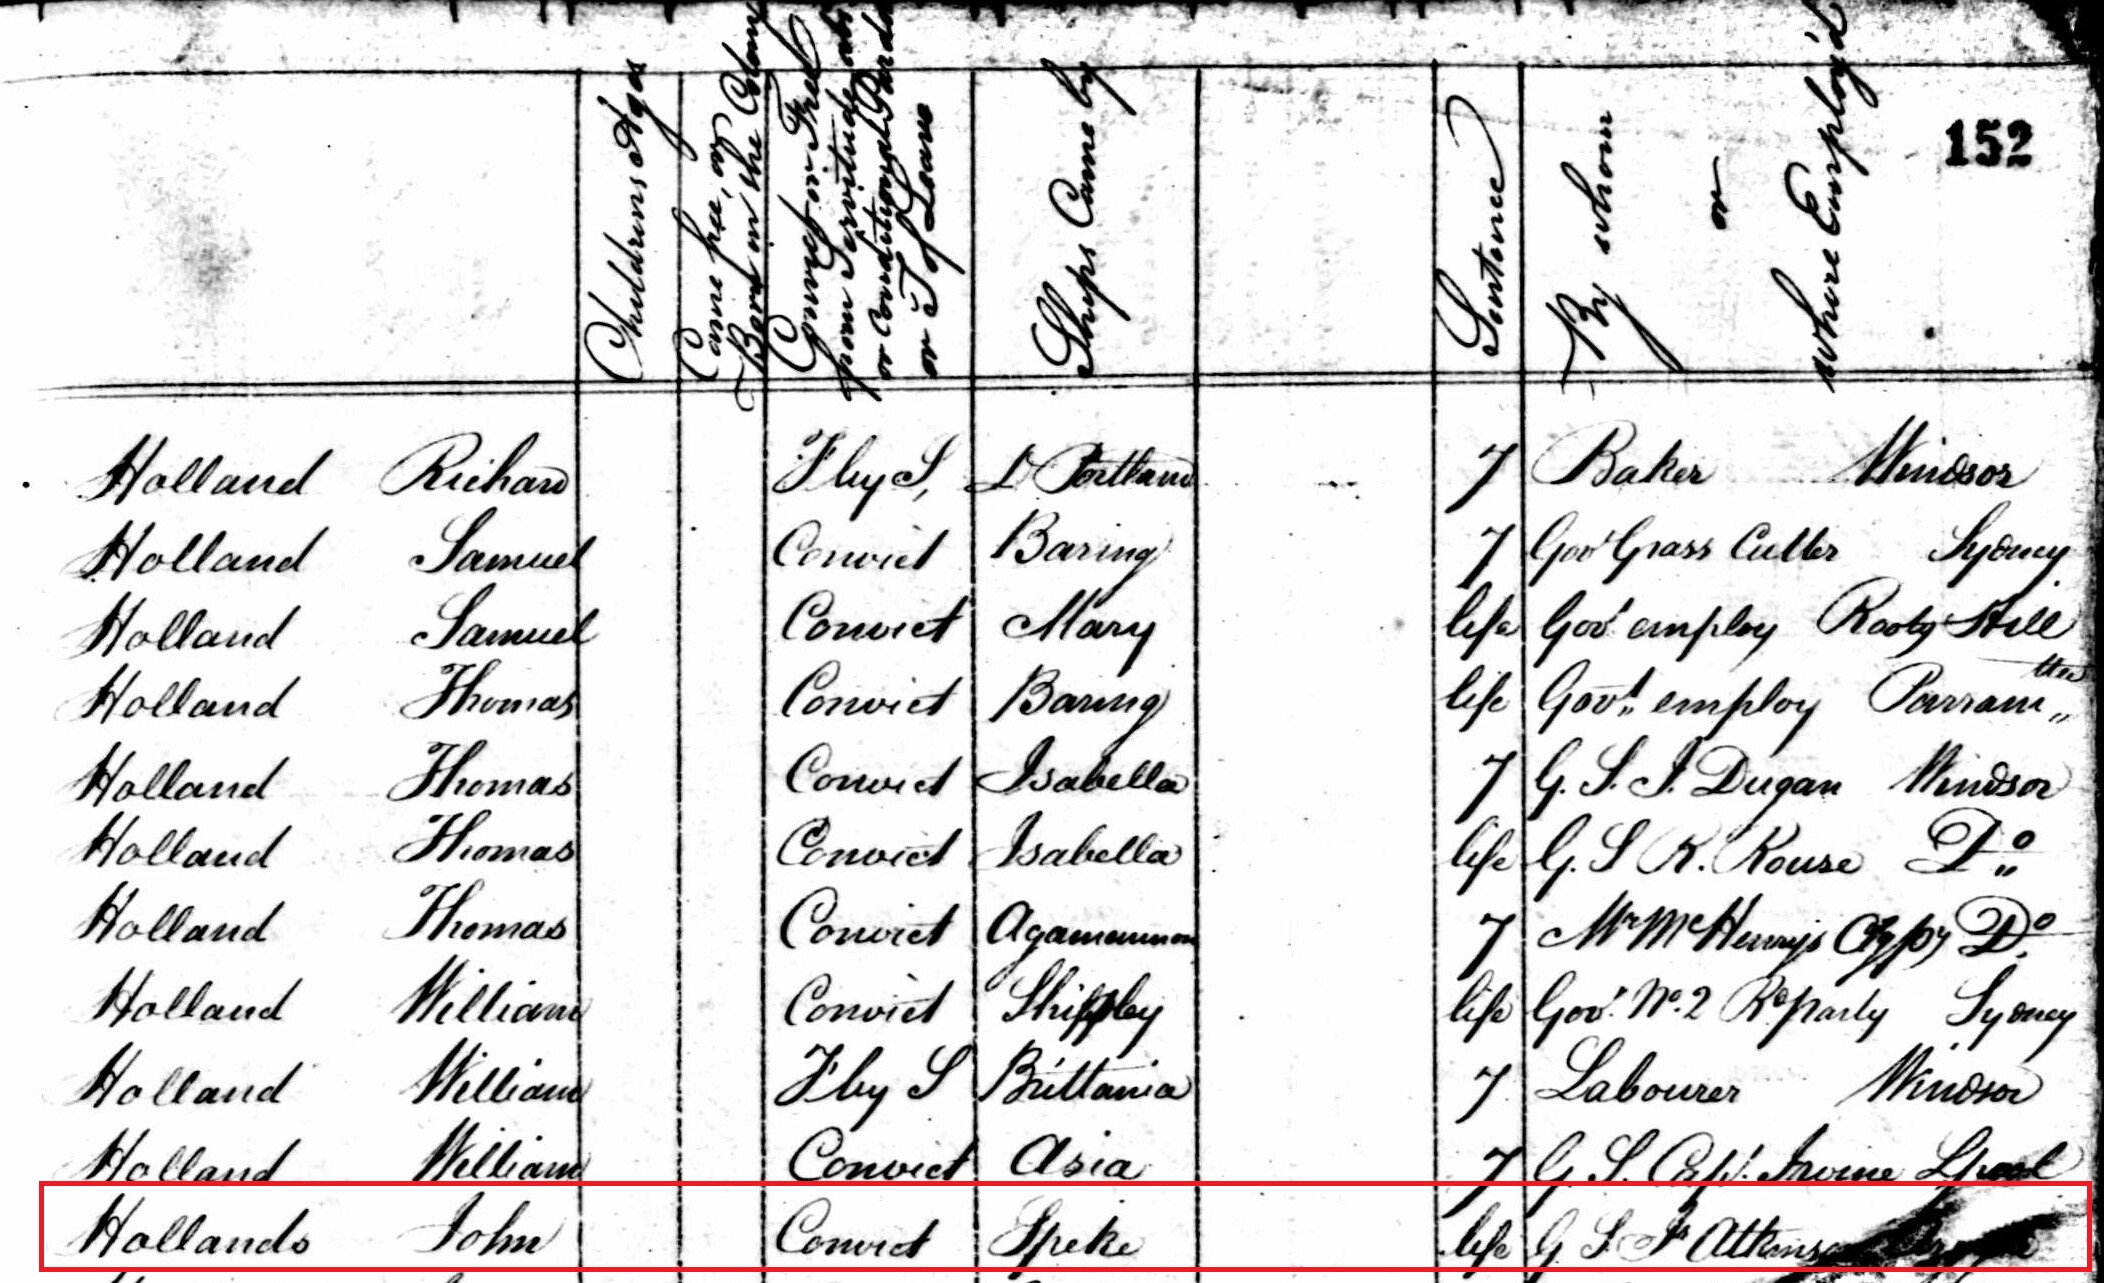 152
Childrens Ages
Came free, or Born in the Colony
Convict or Free from Servitude or Conditional Pardon or T of Leave
Ships Came by
Sentence
By whom or where Employ'd
Holland Richard F by S, L Portland 7 Baker Windsor
Holland Samuel Convict Baring 7 Govt Grass Cutter Sydney
Holland Samuel Convict Mary life Govt employ Rooty Hill
Holland Thomas Convict Baring life Govt employ Parramtta
Holland Thomas Convict Isabella 7 G. S. J. Dugan Windsor
Holland Thomas Convict Isabella life G. S R. Rouse Do
Holland Thomas Convict Agamemnon 7 Mr McHenrys Do
Holland William Convict Shippley life Govt No. 2 Rd party Sydney
Holland William F by S Brittania 7 Labourer Windsor
Holland William Convict Asia 7 G. S. Capt. Irvine Lpool
Hollands John Convict Speke life G. S. Js Atkinson